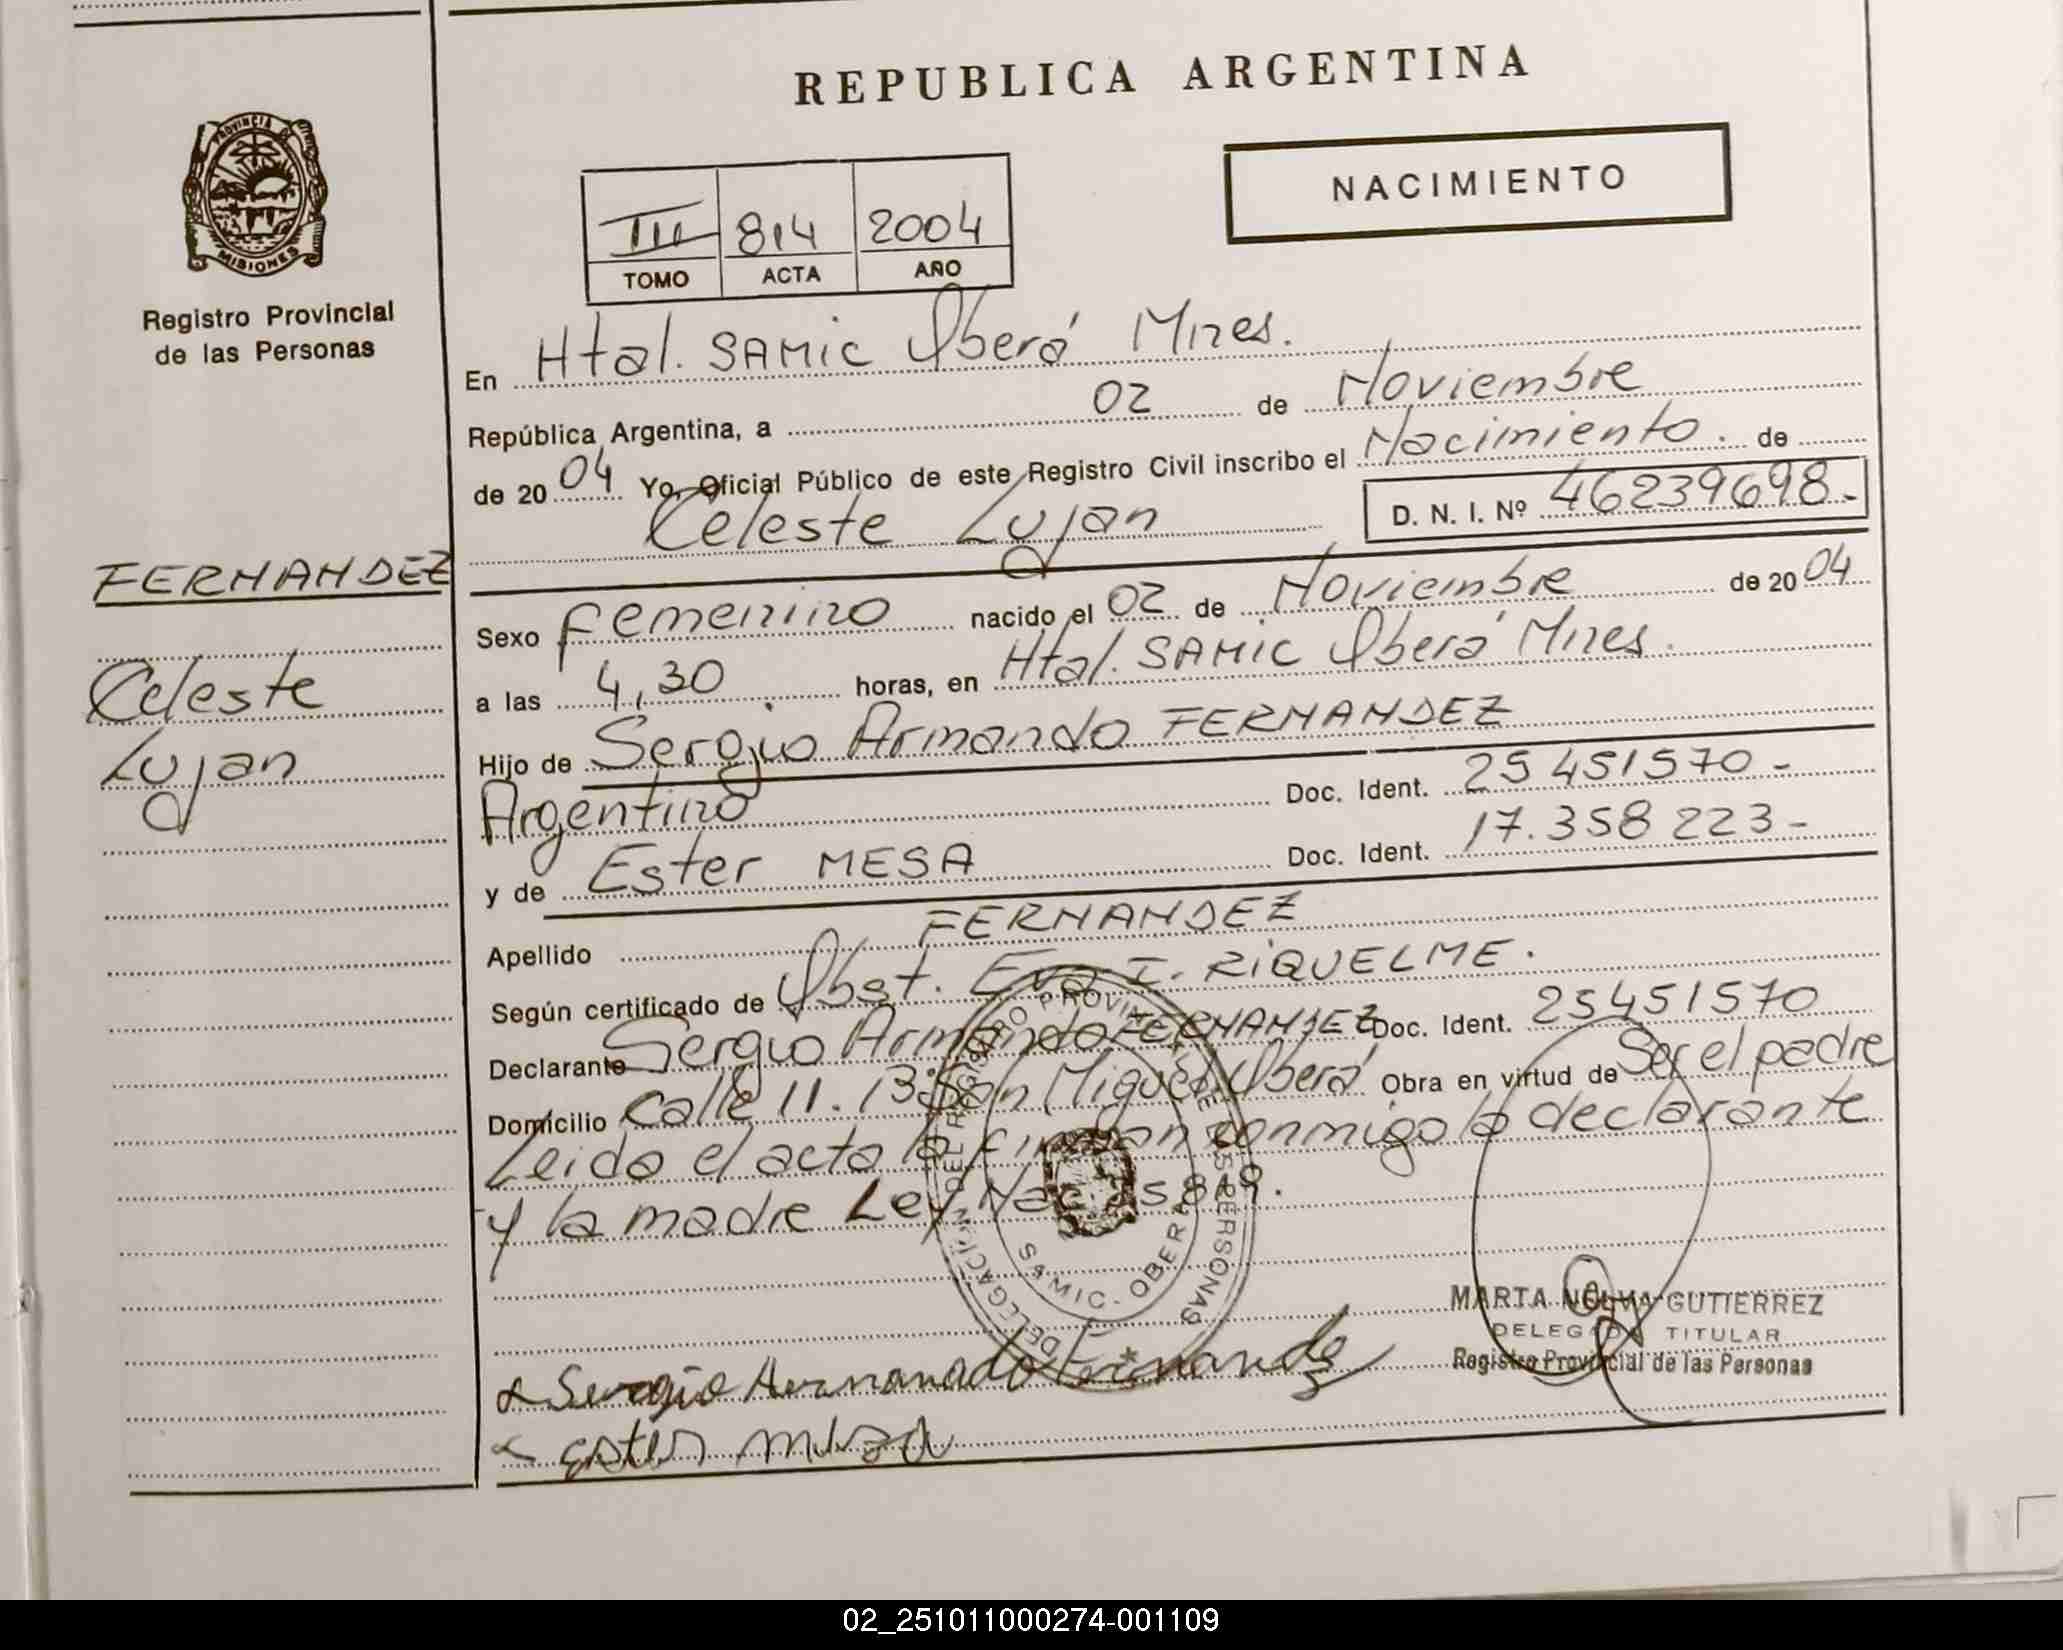 REPUBLICA ARGENTINA
NACIMIENTO
PROVINCIA DE
MISIONES
Registro Provincial
de las Personas
III 814 2004
TOMO ACTA AÑO
En Htal. SAMIC Oberá Mnes.
República Argentina, a 02 de Noviembre
de 2004 Yo, Oficial Público de este Registro Civil inscribo el Nacimiento. de
Celeste Lujan D. N. I. Nº 46239698-
FERNANDEZ
Celeste
Lujan
Sexo Femenino nacido el 02 de Noviembre de 2004
a las 4,30 horas, en Htal. SAMIC Oberá Mnes.
Hijo de Sergio Armando FERNANDEZ
Argentino Doc. Ident. 25451570-
y de Ester MESA Doc. Ident. 17.358 223-
Apellido FERNANDEZ
Según certificado de Obst. Eva I. RIQUELME.
Declarante Sergio Armando FERNANDEZ Doc. Ident. 25451570
Domicilio Calle 11. 13 San Miguel Oberá Obra en virtud de Ser el padre
Leido el acta la firman conmigo la declarante
y la madre Ley Nac 25819.
DELEGACIÓN DEL REGISTRO PROVINCIAL DE LAS PERSONAS
SAMIC - OBERA
MARTA NÉLVIA GUTIERREZ
DELEGADA TITULAR
Registro Provincial de las Personas
Sergio Armando Fernandez
ester meza
02_251011000274-001109